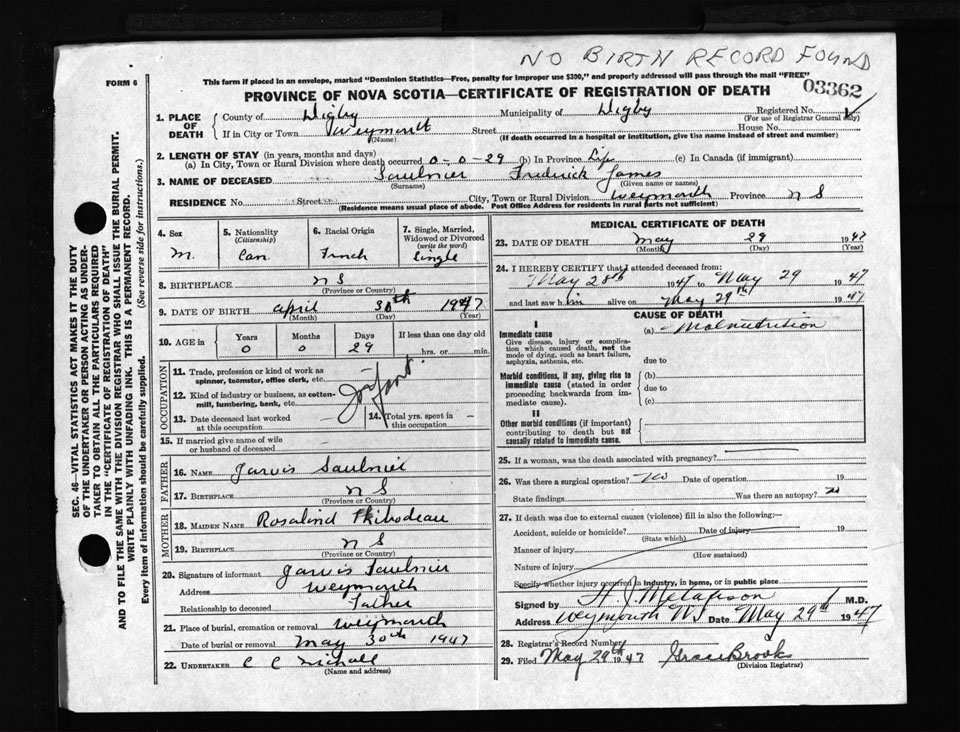 NO BIRTH RECORD FOUND
FORM 6
This form if placed in an envelope, marked "Dominion Statistics—Free, penalty for improper use $300," and properly addressed will pass through the mail "FREE"
03362
PROVINCE OF NOVA SCOTIA—CERTIFICATE OF REGISTRATION OF DEATH
1. PLACE OF DEATH
County of Digby Municipality of Digby Registered No.
(For use of Registrar General only)
If in City or Town Weymouth Street House No.
(Name) (If death occurred in a hospital or institution, give the name instead of street and number)
2. LENGTH OF STAY (in years, months and days)
(a) In City, Town or Rural Division where death occurred 0-0-29 (b) In Province Life (c) In Canada (if immigrant)
3. NAME OF DECEASED Saulnier Frederick James
(Surname) (Given name or names)
RESIDENCE No. Street City, Town or Rural Division Weymouth Province N S
(Residence means usual place of abode. Post Office Address for residents in rural parts not sufficient)
SEC. 46—VITAL STATISTICS ACT MAKES IT THE DUTY
OF THE UNDERTAKER OR PERSON ACTING AS UNDER-
TAKER TO OBTAIN ALL THE PARTICULARS REQUIRED
IN THE "CERTIFICATE OF REGISTRATION OF DEATH"
AND TO FILE THE SAME WITH THE DIVISION REGISTRAR WHO SHALL ISSUE THE BURIAL PERMIT.
WRITE PLAINLY WITH UNFADING INK. THIS IS A PERMANENT RECORD.
Every item of information should be carefully supplied. (See reverse side for instructions.)
4. Sex
M.
5. Nationality
(Citizenship)
Can.
6. Racial Origin
French
7. Single, Married,
Widowed or Divorced
(write the word)
Single
8. BIRTHPLACE N S
(Province or Country)
9. DATE OF BIRTH April 30th 1947
(Month) (Day) (Year)
10. AGE in Years Months Days If less than one day old
0 0 29 hrs. or min.
OCCUPATION
11. Trade, profession or kind of work as
spinner, teamster, office clerk, etc. —
12. Kind of industry or business, as cotten-
mill, lumbering, bank, etc.
13. Date deceased last worked
at this occupation —
14. Total yrs. spent in
this occupation —
15. If married give name of wife
or husband of deceased —
FATHER
16. NAME Jarvis Saulnier
17. BIRTHPLACE N S
(Province or Country)
MOTHER
18. MAIDEN NAME Rosalind Thibodeau
19. BIRTHPLACE N S
(Province or Country)
20. Signature of informant Jarvis Saulnier
Address Weymouth
Relationship to deceased Father
21. Place of burial, cremation or removal Weymouth
Date of burial or removal May 30th 1947
22. UNDERTAKER C C Nichall
(Name and address)
MEDICAL CERTIFICATE OF DEATH
23. DATE OF DEATH May 29 1947
(Month) (Day) (Year)
24. I HEREBY CERTIFY that I attended deceased from:
May 28th 1947 to May 29 1947
and last saw him alive on May 29th 1947
CAUSE OF DEATH
I
Immediate cause (a) Malnutrition
Give disease, injury or complica-
tion which caused death, not the
mode of dying, such as heart failure,
asphyxia, asthenia, etc.
due to
Morbid conditions, if any, giving rise to
immediate cause (stated in order
proceeding backwards from im-
mediate cause).
(b)
due to
(c)
II
Other morbid conditions (if important)
contributing to death but not
causally related to immediate cause.
25. If a woman, was the death associated with pregnancy?
26. Was there a surgical operation? No Date of operation 19
State findings Was there an autopsy? No
27. If death was due to external causes (violence) fill in also the following:—
Accident, suicide or homicide? Date of injury 19
(State which)
Manner of injury
(How sustained)
Nature of injury
Specify whether injury occurred in industry, in home, or in public place
Signed by M.D.
Address Weymouth NS Date May 29th 1947
28. Registrar's Record Number
29. Filed May 29th 1947 Grace Brooks
(Division Registrar)